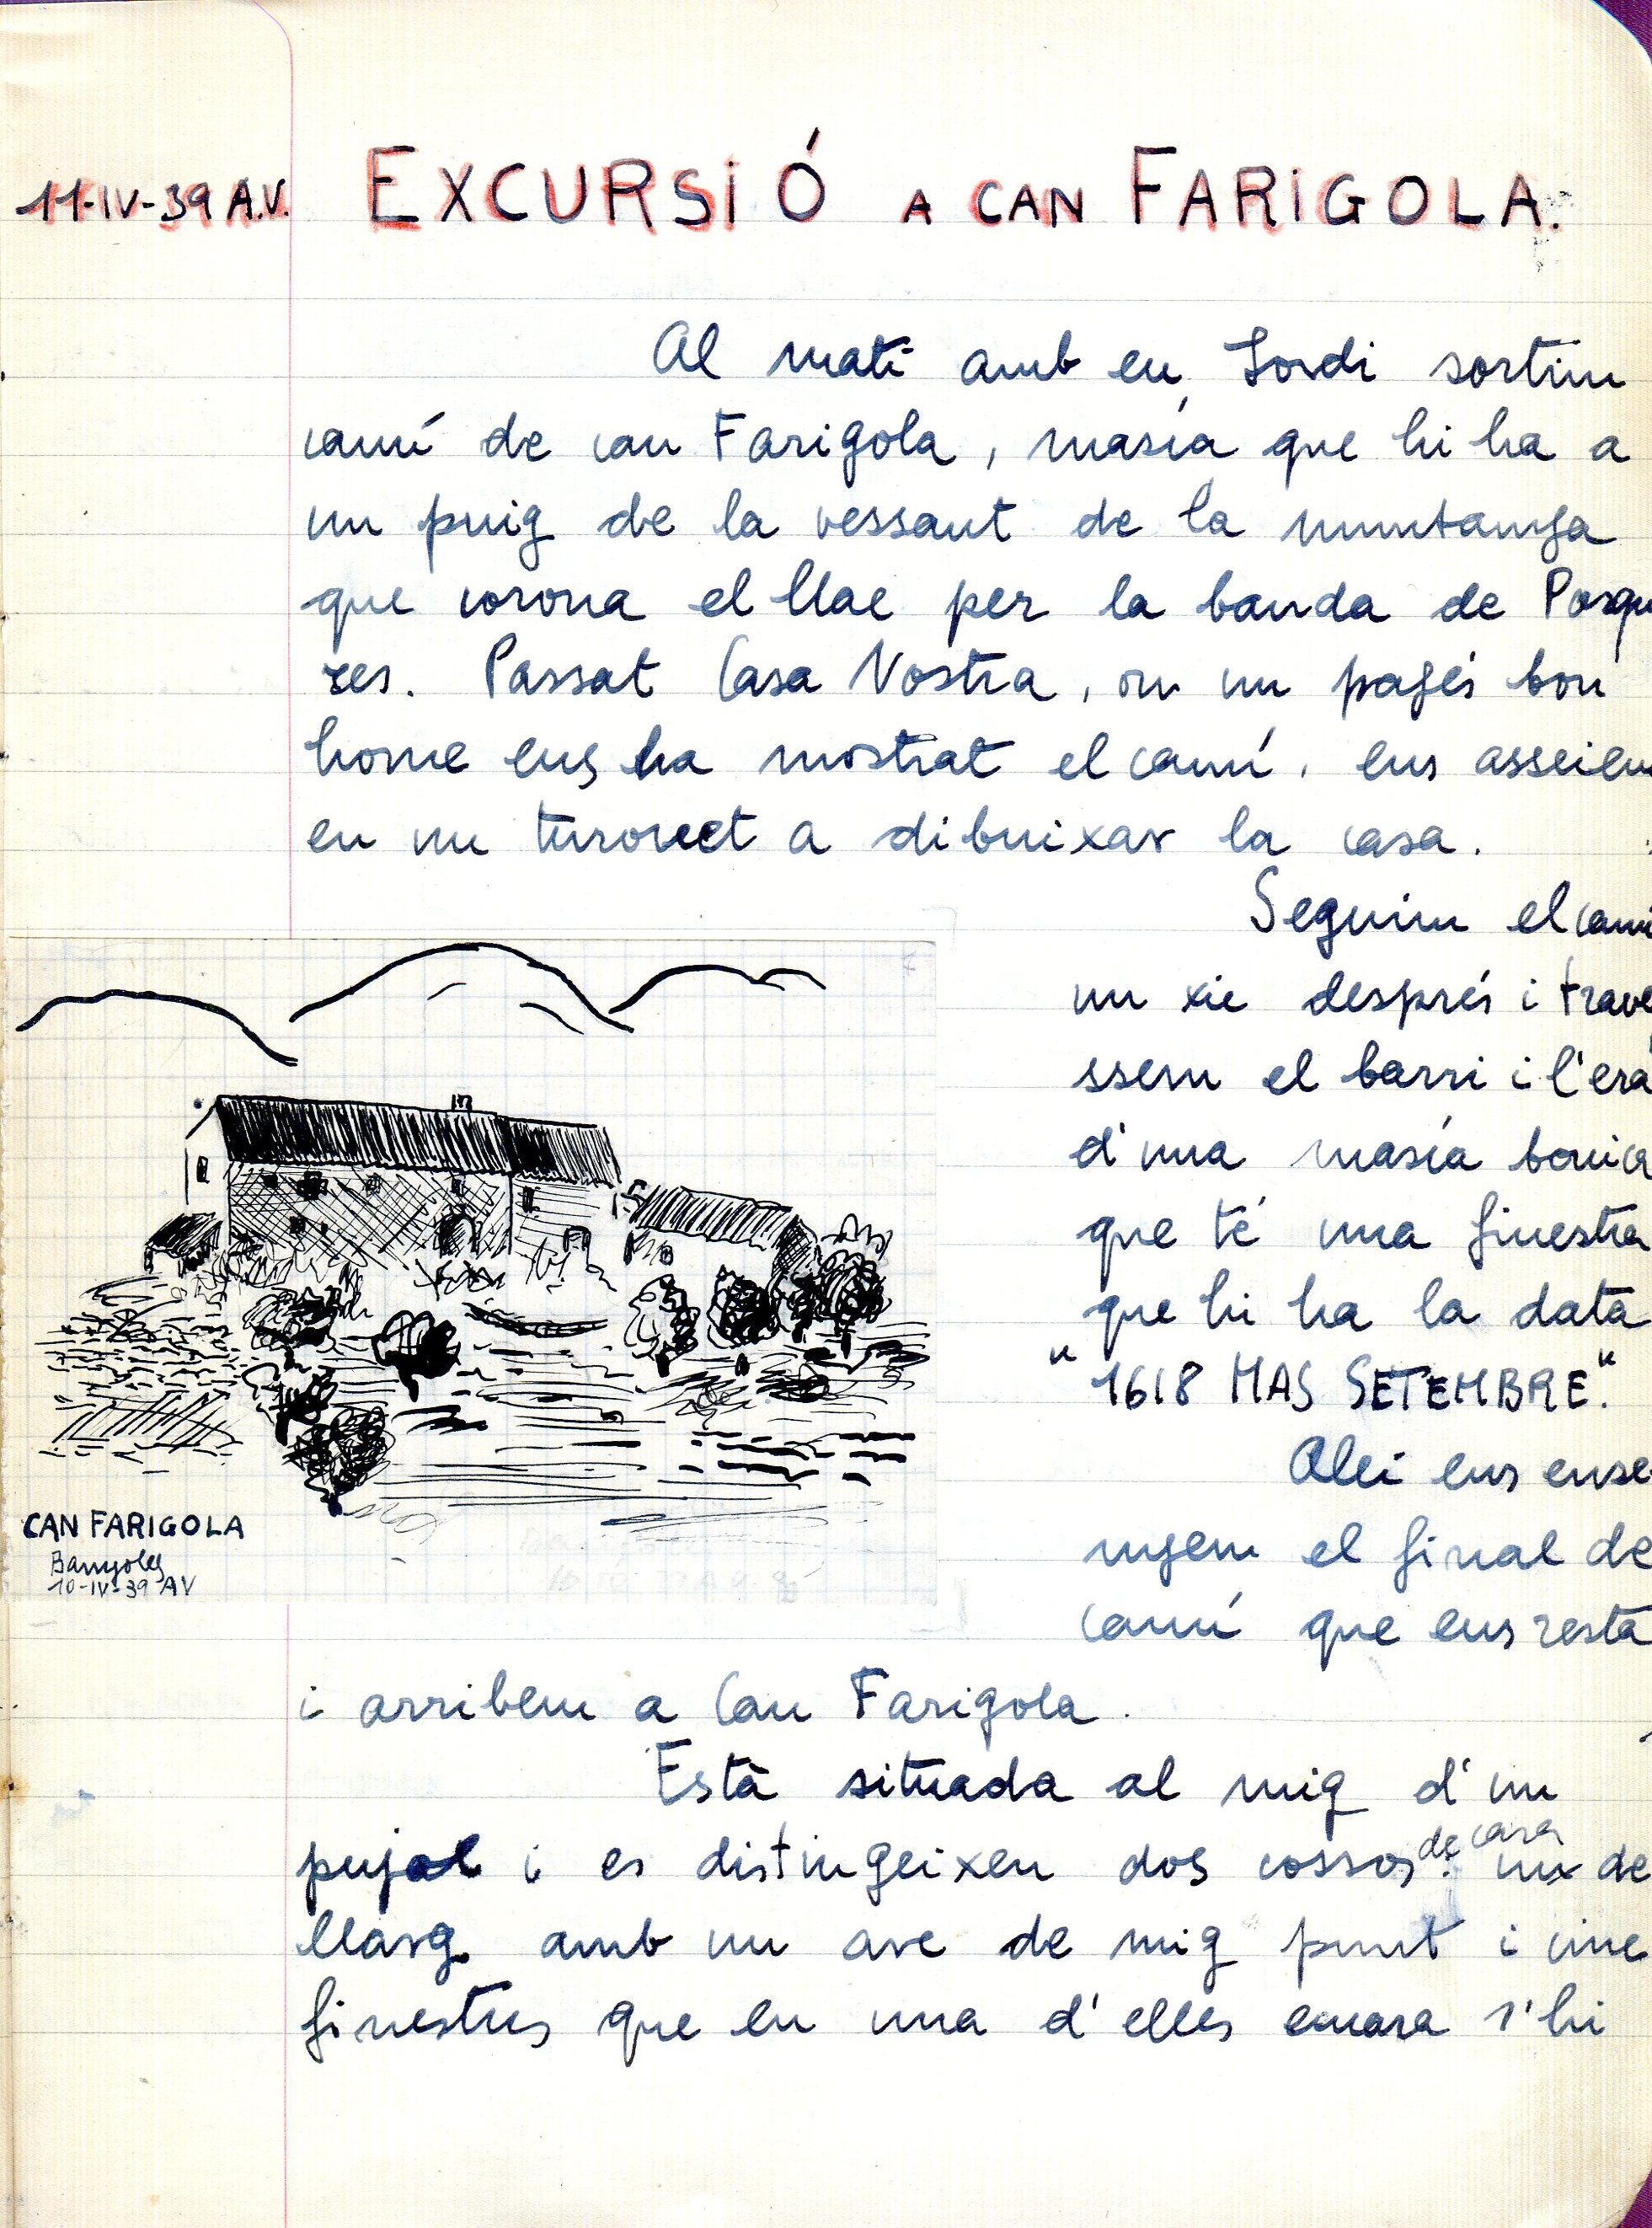 11-IV-39 A.V. EXCURSIÓ A CAN FARIGOLA.
Al matí amb en Jordi sortim
camí de can Farigola, masía que hi ha a
un puig de la vessant de la muntanya
que corona el llac per la banda de Porque
res. Passat Casa Nostra, on un pagés bon
home ens ha mostrat el camí, ens asseiem
en un turonet a dibuixar la casa.
Seguim el camí
un xic després i trave
ssem el barri i l'era
d'una masía bonica
que té una finestra
que hi ha la data
"1618 MAS SETEMBRE."
Alli ens ense
nyem el final de
camí que ens resta
i arribem a Can Farigola.
Està situada al mig d'un
pujol i es distingeixen dos cossos de cara un de
llarg amb un arc de mig punt i cinc
finestres que en una d'elles encara s'hi
CAN FARIGOLA
Banyoles
10-IV-39 AV